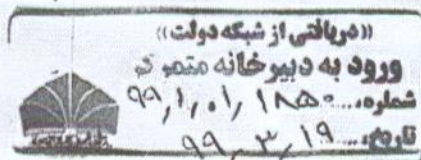 «دریافتی از شبکه دولت»
ورود به دبیرخانه متمرکز
شماره: ۹۹/۱/۰۱/۱۸۵۰
تاریخ: ۹۹/۳/۱۹